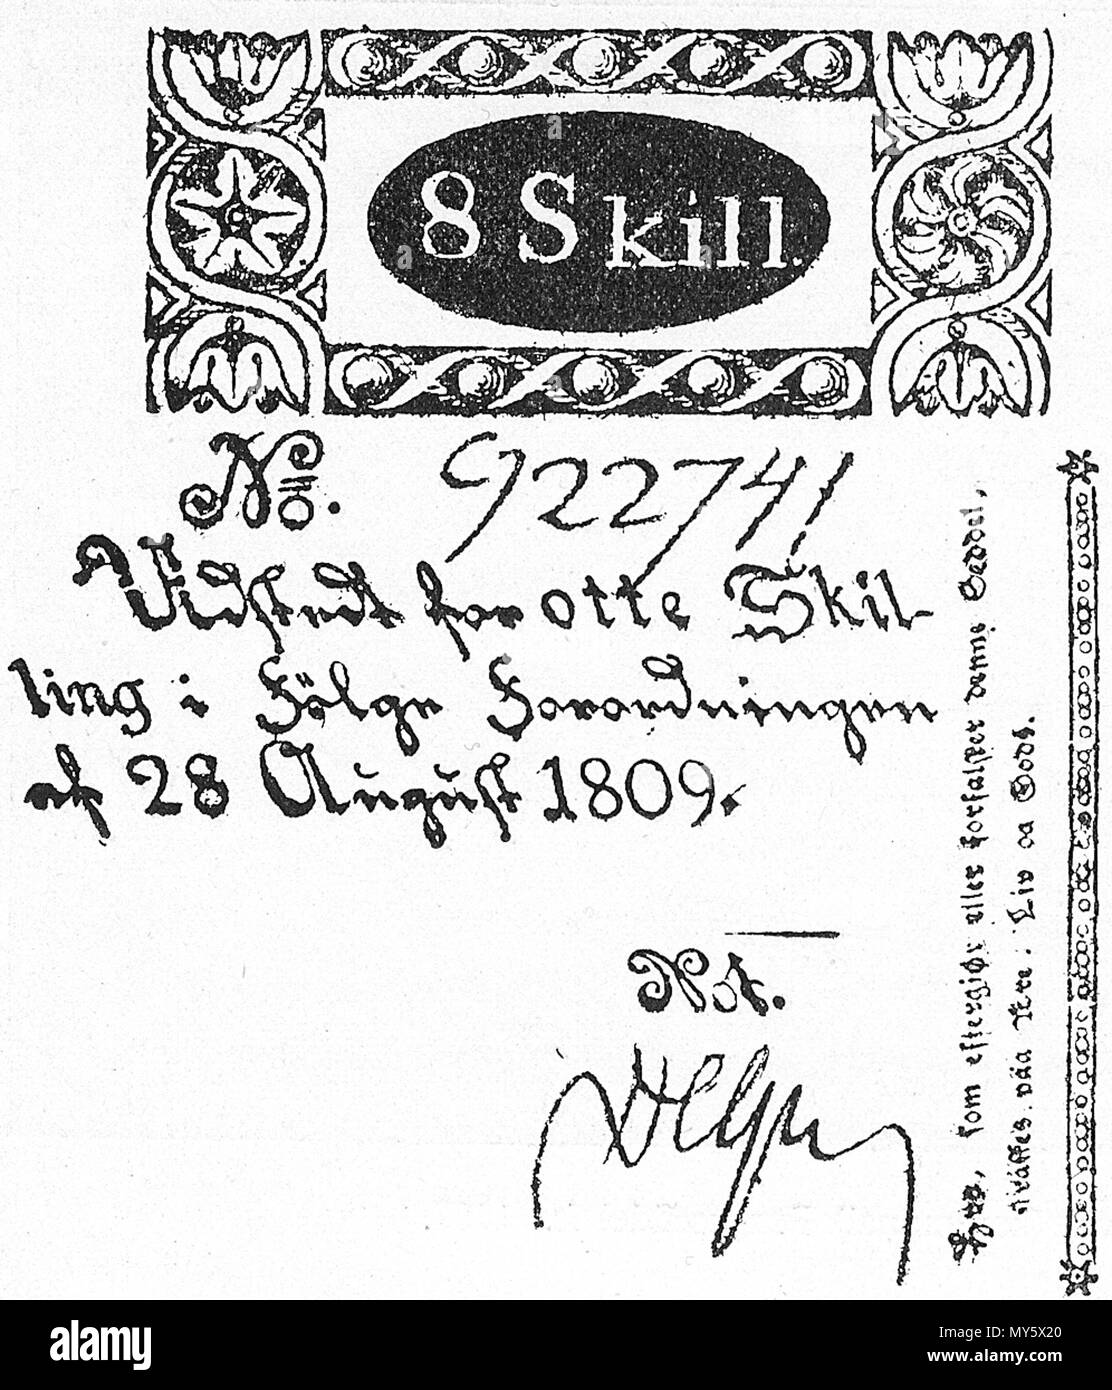 8 Skill.
No. 922741
Udstedt for otte Skil-
ling i Fölge Forordningen
af 28 August 1809.
Not.
Hver, som eftergiør eller forfalsker denne Seddel,
straffes paa Ære, Liv og Gods.
alamy
Image ID: MY5X20
www.alamy.com